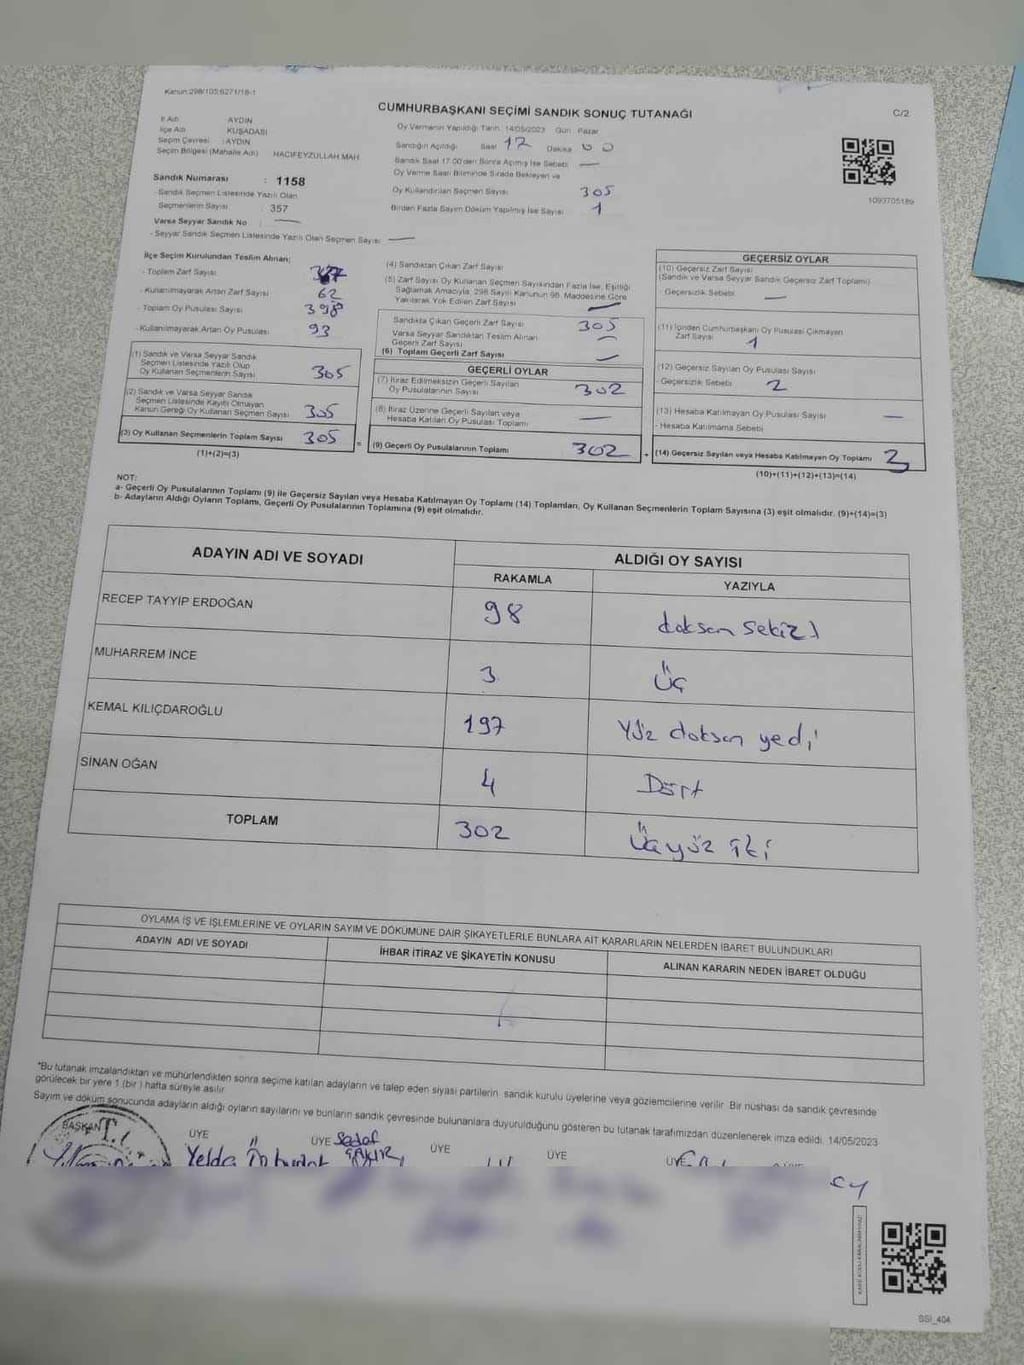 Kanun:298/105;6271/18-1
CUMHURBAŞKANI SEÇİMİ SANDIK SONUÇ TUTANAĞI
C/2
İl Adı : AYDIN
İlçe Adı : KUŞADASI
Seçim Çevresi : AYDIN
Seçim Bölgesi (Mahalle Adı) : HACIFEYZULLAH MAH.
Oy Vermenin Yapıldığı Tarih: 14/05/2023 Gün: Pazar
Sandığın Açıldığı Saat 17 Dakika 00
Sandık Saat 17.00'den Sonra Açılmış İse Sebebi —
Oy Verme Saati Bitiminde Sırada Bekleyen ve
Oy Kullandırılan Seçmen Sayısı 305
Birden Fazla Sayım Döküm Yapılmış İse Sayısı 1
1093705189
Sandık Numarası : 1158
Sandık Seçmen Listesinde Yazılı Olan
Seçmenlerin Sayısı : 357
Varsa Seyyar Sandık No —
- Seyyar Sandık Seçmen Listesinde Yazılı Olan Seçmen Sayısı —
İlçe Seçim Kurulundan Teslim Alınan;
- Toplam Zarf Sayısı
- Kullanılmayarak Artan Zarf Sayısı 62
- Toplam Oy Pusulası Sayısı 398
- Kullanılmayarak Artan Oy Pusulası 93
(1) Sandık ve Varsa Seyyar Sandık
Seçmen Listesinde Yazılı Olup
Oy Kullanan Seçmenlerin Sayısı 305
(2) Sandık ve Varsa Seyyar Sandık
Seçmen Listesinde Kayıtlı Olmayan
Kanun Gereği Oy Kullanan Seçmen Sayısı 305
(3) Oy Kullanan Seçmenlerin Toplam Sayısı 305
(1)+(2)=(3)
(4) Sandıktan Çıkan Zarf Sayısı
(5) Zarf Sayısı Oy Kullanan Seçmen Sayısından Fazla İse, Eşitliği
Sağlamak Amacıyla, 298 Sayılı Kanunun 98. Maddesine Göre
Yakılarak Yok Edilen Zarf Sayısı —
Sandıkta Çıkan Geçerli Zarf Sayısı 305
Varsa Seyyar Sandıktan Teslim Alınan
Geçerli Zarf Sayısı —
(6) Toplam Geçerli Zarf Sayısı —
GEÇERLİ OYLAR
(7) İtiraz Edilmeksizin Geçerli Sayılan
Oy Pusulalarının Sayısı 302
(8) İtiraz Üzerine Geçerli Sayılan veya
Hesaba Katılan Oy Pusulası Toplamı —
(9) Geçerli Oy Pusulalarının Toplamı 302
GEÇERSİZ OYLAR
(10) Geçersiz Zarf Sayısı
(Sandık ve Varsa Seyyar Sandık Geçersiz Zarf Toplamı)
- Geçersizlik Sebebi —
(11) İçinden Cumhurbaşkanı Oy Pusulası Çıkmayan
Zarf Sayısı 1
(12) Geçersiz Sayılan Oy Pusulası Sayısı
- Geçersizlik Sebebi 2
(13) Hesaba Katılmayan Oy Pusulası Sayısı —
- Hesaba Katılmama Sebebi
(14) Geçersiz Sayılan veya Hesaba Katılmayan Oy Toplamı 3
(10)+(11)+(12)+(13)=(14)
NOT:
a- Geçerli Oy Pusulalarının Toplamı (9) ile Geçersiz Sayılan veya Hesaba Katılmayan Oy Toplamı (14) Toplamları, Oy Kullanan Seçmenlerin Toplam Sayısına (3) eşit olmalıdır. (9)+(14)=(3)
b- Adayların Aldığı Oyların Toplamı, Geçerli Oy Pusulalarının Toplamına (9) eşit olmalıdır.
ADAYIN ADI VE SOYADI
ALDIĞI OY SAYISI
RAKAMLA YAZIYLA
RECEP TAYYİP ERDOĞAN 98 doksan sekiz
MUHARREM İNCE 3 Üç
KEMAL KILIÇDAROĞLU 197 Yüz doksan yedi
SİNAN OĞAN 4 Dört
TOPLAM 302 Üçyüz iki
OYLAMA İŞ VE İŞLEMLERİNE VE OYLARIN SAYIM VE DÖKÜMÜNE DAİR ŞİKAYETLERLE BUNLARA AİT KARARLARIN NELERDEN İBARET BULUNDUKLARI
ADAYIN ADI VE SOYADI İHBAR İTİRAZ VE ŞİKAYETİN KONUSU ALINAN KARARIN NEDEN İBARET OLDUĞU
*Bu tutanak imzalandıktan ve mühürlendikten sonra seçime katılan adayların ve talep eden siyasi partilerin, sandık kurulu üyelerine veya gözlemcilerine verilir. Bir nüshası da sandık çevresinde
görülecek bir yere 1 (bir) hafta süreyle asılır.
Sayım ve döküm sonucunda adayların aldığı oyların sayılarını ve bunların sandık çevresinde bulunanlara duyurulduğunu gösteren bu tutanak tarafımızdan düzenlenerek imza edildi. 14/05/2023
BAŞKAN ÜYE ÜYE ÜYE ÜYE ÜYE
T.
Yelda
Sedef
SSI_404